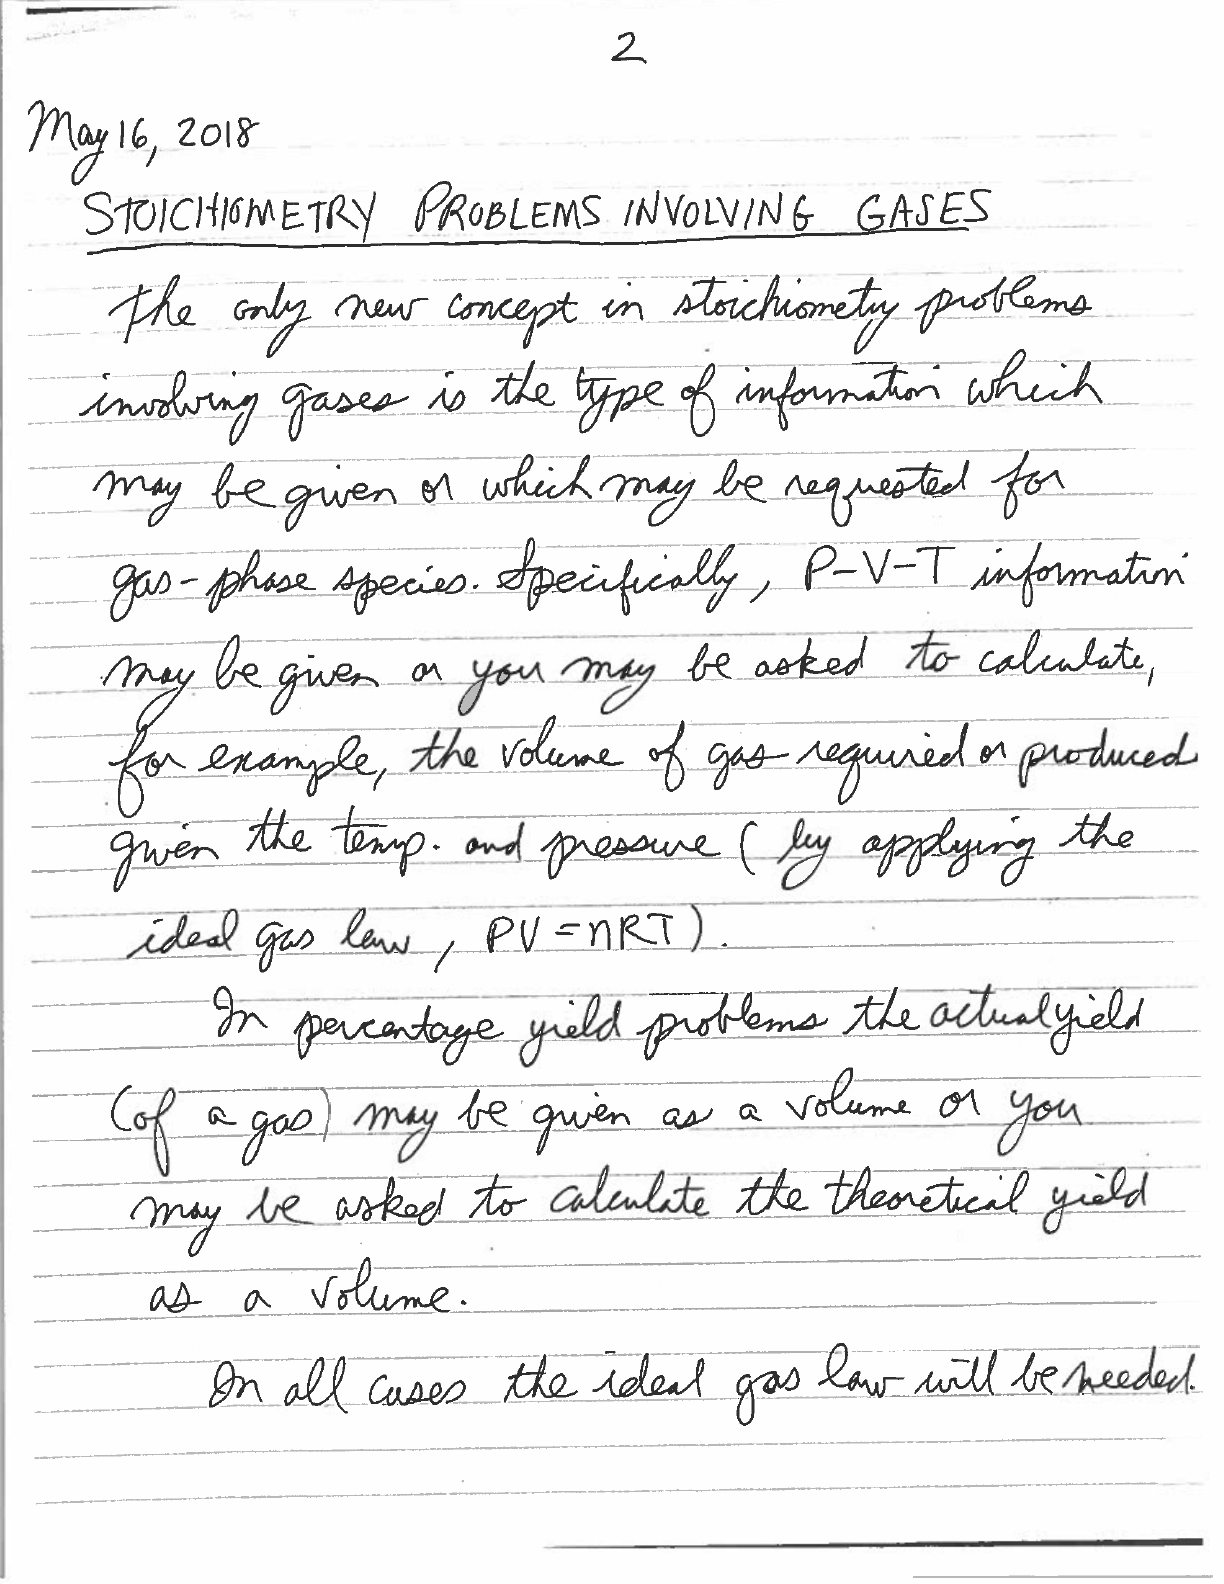 2
May 16, 2018
STOICHIOMETRY PROBLEMS INVOLVING GASES
The only new concept in stoichiomety problems
involving gases is the type of information which
may be given or which may be requested for
gas-phase species. Specifically, P-V-T information
may be given or you may be asked to calculate,
for example, the volume of gas required or produced
given the temp. and pressure (by applying the
ideal gas law, PV=nRT).
In percentage yield problems the actual yield
(of a gas) may be given as a volume or you
may be asked to calculate the theoretical yield
as a volume.
In all cases the ideal gas law will be needed.